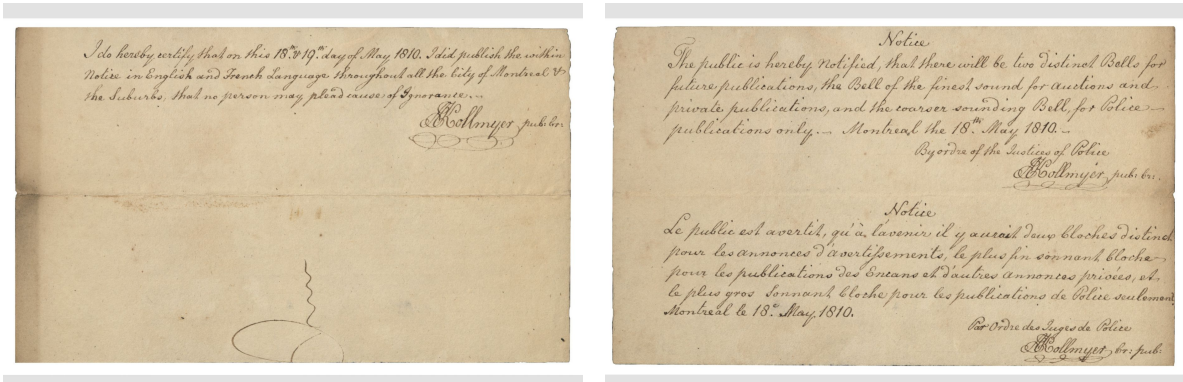 I do hereby certify that on this 18th & 19th day of May 1810. I did publish the within
Notice in English and French Language throughout all the City of Montreal &
the Suburbs, that no person may plead cause of Ignorance.—
AKollmyer pub: br:
Notice
The public is hereby Notified, that there will be two distinct Bells for
future publications, the Bell of the finest sound for Auctions and
private publications, and the coarser sounding Bell, for Police
publications only.— Montreal the 18th May 1810.—
By ordre of the Justices of Police
AKollmyer, pub: br:
Notice
Le public est avertit, qu'à l'avenir il y aurait deux Cloches distinct
pour les annonces d'avertissements, le plus fin sonnant Cloche
pour les publications des Encans et d'autres Annonces privées, et
le plus gros Sonnant Cloche pour les publications de Police seulement
Montreal le 18e. May. 1810.
Par Ordre des Juges de Police
AKollmyer, br: pub: